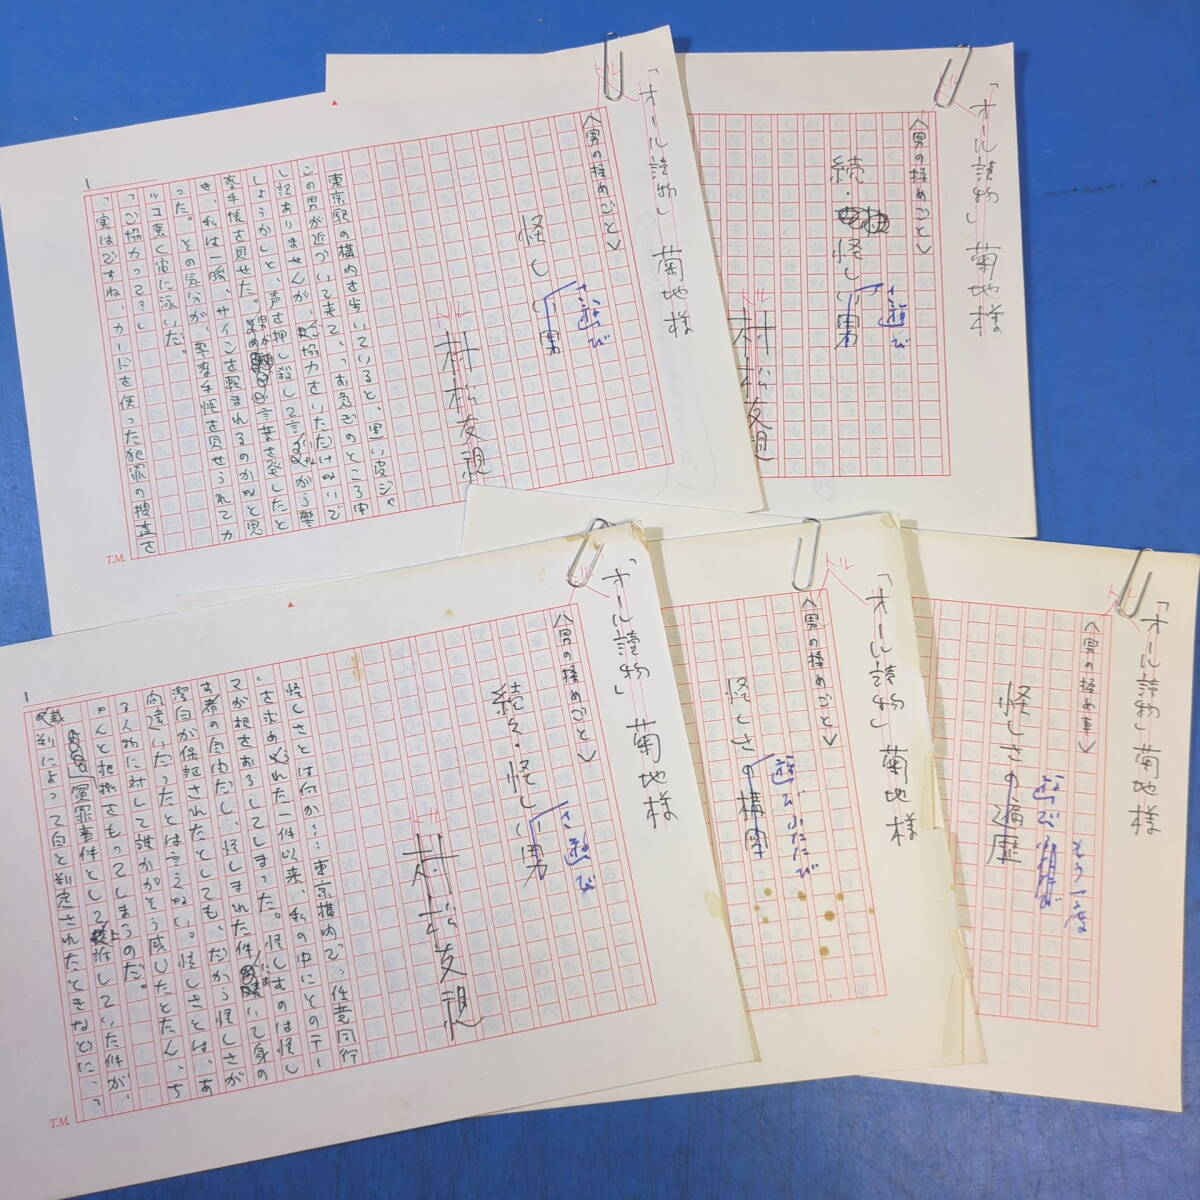 「オール読物」 菊地様
トル
〈男の揉めごと〉
怪しい男
さ遊び
トル
村松友視
東京駅の構内を歩いていると、黒い皮ジャ
この男が近づいて来て、「お急ぎのところ申
し訳ありませんが、ご協力をいただけないで
しょうかと、声を押し殺して言いながら警
察手帳を見せた。男の言葉を発したと
き、私は一瞬、サインを頼まれるのかなと思
った。その気分が、警察手帳を見せられてカ
ッコ悪く宙に泳いだ。
「ご協力って？」
「実はですね、カードを使った犯罪の捜査を
1
T.M.
「オール読物」 菊地様
トル
〈男の揉めごと〉
続・怪しい男
さ遊び
トル
村松友視
「オール読物」 菊地様
トル
〈男の揉めごと〉
続々・怪しい男
さ遊び
トル
村松友視
怪しさとは何か…東京構内で、任意同行
を求められた一件以来、私の中にこのテー
マが根をおろしてしまった。怪しむのは怪し
む者の自由だし、怪しまれた件について身の
潔白が保証されたとしても、だから怪しさが
間違いだったとは言えない。怪しさとは、あ
る人物に対して誰かがそう感じたとたん、ち
ゃんと根拠をもってしまうのだ。
冤罪事件として落着していた件が、
裁判によって白と判定されたときなどに、っ
1
T.M.
「オール読物」 菊地様
トル
〈男の揉めごと〉
怪しさの構図
遊びふたたび
「オール読物」 菊地様
トル
〈男の揉め事〉
怪しさの遍歴
もう一度